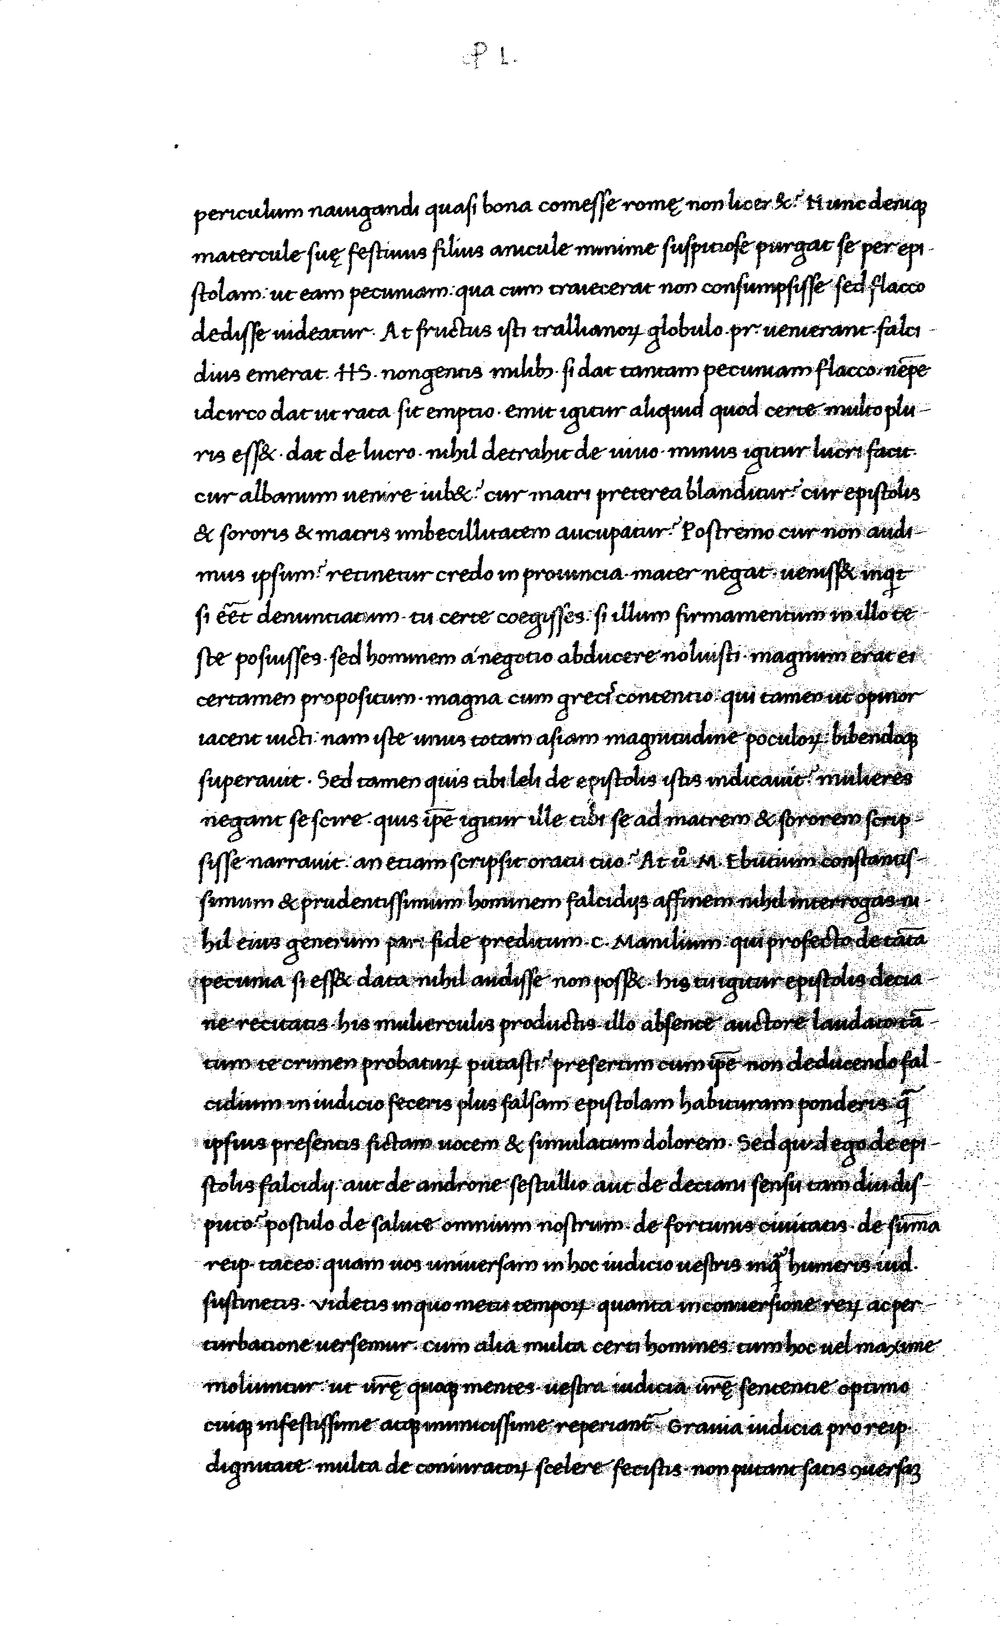 P L.
periculum nauigandi quasi bona comesse romę non licer&? Nunc deniqꝫ
matercule suę festiuus filius anicule minime suspitiose purgat se per epi-
stolam: ut eam pecuniam: qua cum traiecerat non consumpsisse sed flacco
dedisse uideatur. At fructus isti trallianoꝝ globulo. pr. uenierant. falci-
dius emerat. HS. nongentis milibꝫ. si dat tantam pecuniam flacco. nēpe
idcirco dat ut rata sit emptio. emit igitur aliquid quod certe multo plu-
ris ess&. dat de lucro. nihil detrahit de uiuo. minus igitur lucri facit.
cur albanum uenire iub&? cur matri preterea blanditur? cur epistolis
& sororis & matris imbecillitatem aucupatur? Postremo cur non audi-
mus ipsum? retinetur credo in prouincia. mater negat. ueniss& inqͥt
si eēt denuntiatum. tu certe coegisses. si illum firmamentum in illo te-
ste posuisses. sed hominem a negotio abducere noluisti. magnum erat ei
certamen propositum. magna cum grecis contentio. qui tamen ut opinor
iacent uicti. nam iste unus totam asiam magnitudine poculoꝝ: bibendoqꝫ
superauit. Sed tamen quis tibi leli de epistolis istis indicauit? mulieres
negant se scire. quis ip̄e igitur ille tibi se ad matrem & sororem scrip-
sisse narrauit. an etiam scripsit oratu tuo? At ū̊ M. Ebutium constantis-
simum & prudentissimum hominem falcidijs affinem nihil interrogas. ni-
hil eius generum pari fide preditum. C. Manilium. qui profecto de tāta
pecunia si ess& data nihil audisse non poss&. his tu igitur epistolis decia-
ne recitatis. his mulierculis productis. illo absente auctore laudato tā-
tum te crimen probaturꝝ putasti? presertim cum ip̄e non deducendo fal-
cidium in iudicio feceris plus falsam epistolam habituram ponderis. q̄
ipsius presentis fictam uocem & simulatum dolorem. Sed quid ego de epi-
stolis falcidij. aut de androne sestullio aut de deciani sensu tam diu dis-
puto? postulo de salute omnium nostrum. de fortunis ciuitatis. de sum̄a
reip. taceo. quam uos uniuersam in hoc iudicio uestris inq̄ humeris iud.
sustinetis. Videtis in quo metu tempoꝝ quanta in conuersione reꝝ ac per-
turbatione uersemur. cum alia multa certi homines. tum hoc uel maxime
moliuntur. ut ur̄ę quoqꝫ mentes. uestra iudicia. ur̄ę sententie optimo
cuiqꝫ infestissime atqꝫ inimicissime reperiant᷑. Grauia iudicia pro reip.
dignitate. multa de coniuratoꝝ scelere fecistis. non putant satis ꝯuersaꝫ